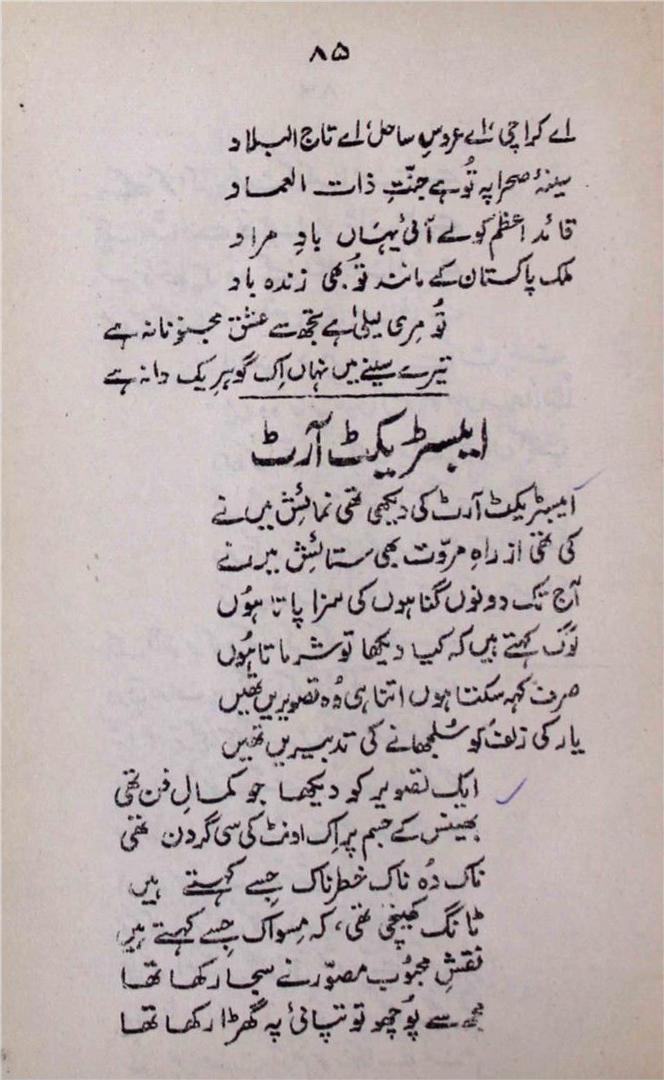 ۸۵
اے کراچی، اے عروسِ ساحل، اے تاج البلاد
سینۂ صحرا پہ تُو ہے جنّتِ ذات العماد
قائد اعظم کو لے آئی یہاں بادِ مراد
ملک پاکستان کے مانند تُو بھی زندہ باد
تُو مِری لیلیٰ ہے تجھ سے عشق مجنونانہ ہے
تیرے سینے میں نہاں اِک گوہرِ یک دانہ ہے
ایبسٹریکٹ آرٹ
ایبسٹریکٹ آرٹ کی دیکھی تھی نمائش میں نے
کی تھی از راہِ مروّت بھی ستائش میں نے
آج تک دونوں گناہوں کی سزا پاتا ہُوں
لوگ کہتے ہیں کہ کیا دیکھا تو شرماتا ہُوں
صرف کہہ سکتا ہوں اتنا ہی وُہ تصویریں تھیں
یار کی زلف کو سُلجھانے کی تدبیریں تھیں
ایک تصویر کو دیکھا جو کمالِ فن تھی
بھینس کے جسم پر اِک اونٹ کی سی گردن تھی
ناک وُہ ناک خطرناک جسے کہتے ہیں
ٹانگ کھینچی تھی، کہ مِسواک جسے کہتے ہیں
نقشِ محبُوب مصوّر نے سجا رکھا تھا
مجھ سے پُوچھو تو تپائی پہ گھڑا رکھا تھا